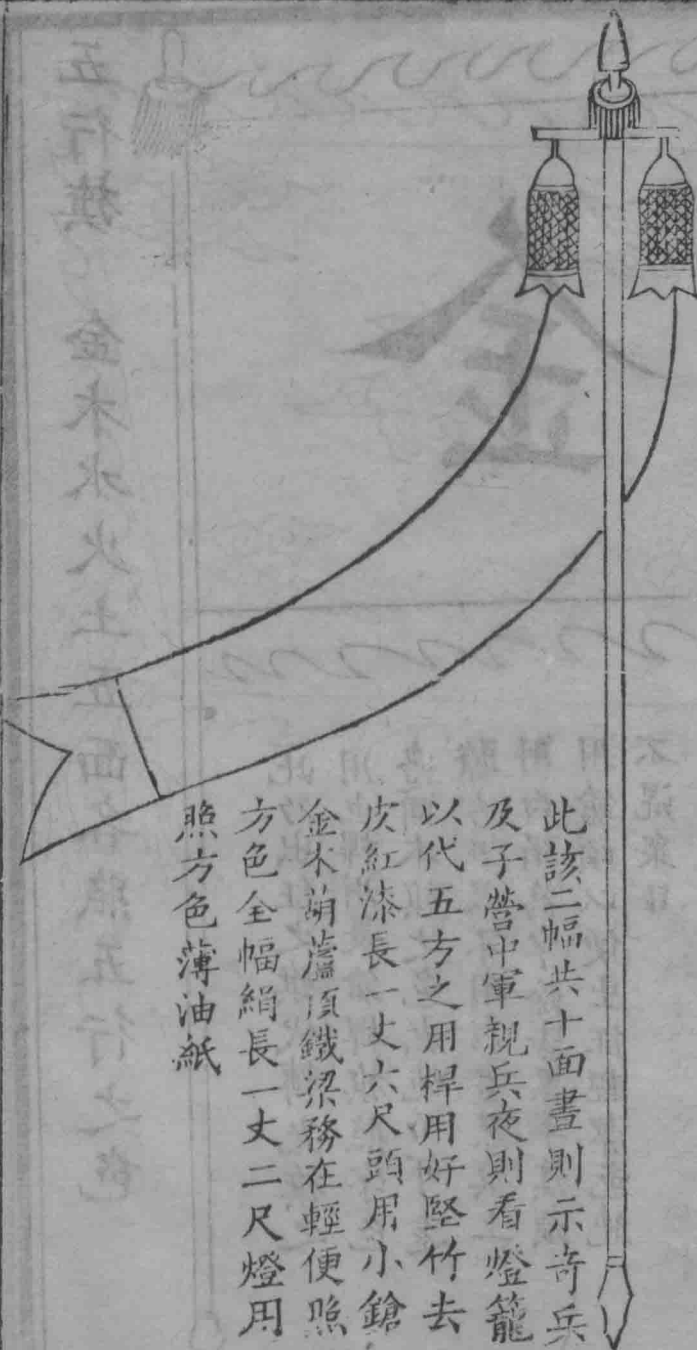 此該二幅共十面晝則示奇兵
及子營中軍親兵夜則看燈籠
以代五方之用桿用好堅竹去
皮紅漆長一丈六尺頭用小鎗
金木葫蘆頂鐵梁務在輕便照
方色全幅絹長一丈二尺燈用
照方色薄油紙